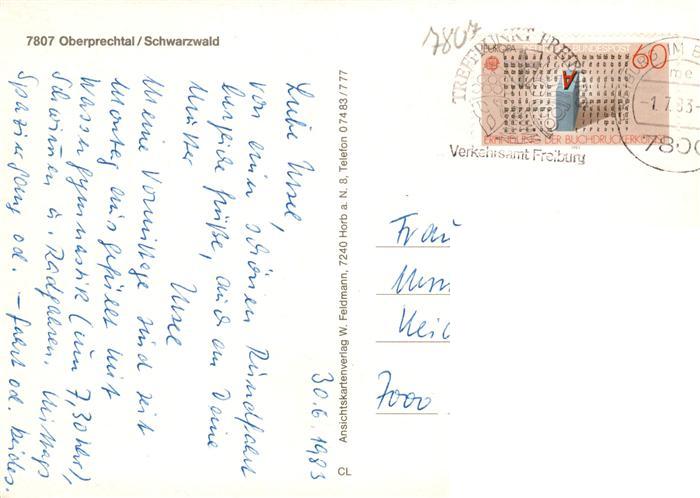 7807 Oberprechtal / Schwarzwald
30.6.1983
Liebe Ursel,
von einer schönen Rundfahrt
herzliche Grüße, auch an Deine
Mutter
Ursel
Meine Vormittage sind seit
Montag ausgefüllt mit
Wassergymnastik (um 7,30 Uhr),
Schwimmen u. Radfahren. Mittags
Spaziergang od. -fahrt od. beides.
Ansichtskartenverlag W. Feldmann, 7240 Horb a. N. 8, Telefon 0 74 83 / 7 77
CL
7807
TREFFPUNKT FREIB
Verkehrsamt Freiburg
EUROPA
BUNDESPOST
60
A
ERFINDUNG DER BUCHDRUCKERKUNST
IM B
-1.7.83
7800
Frau
7000